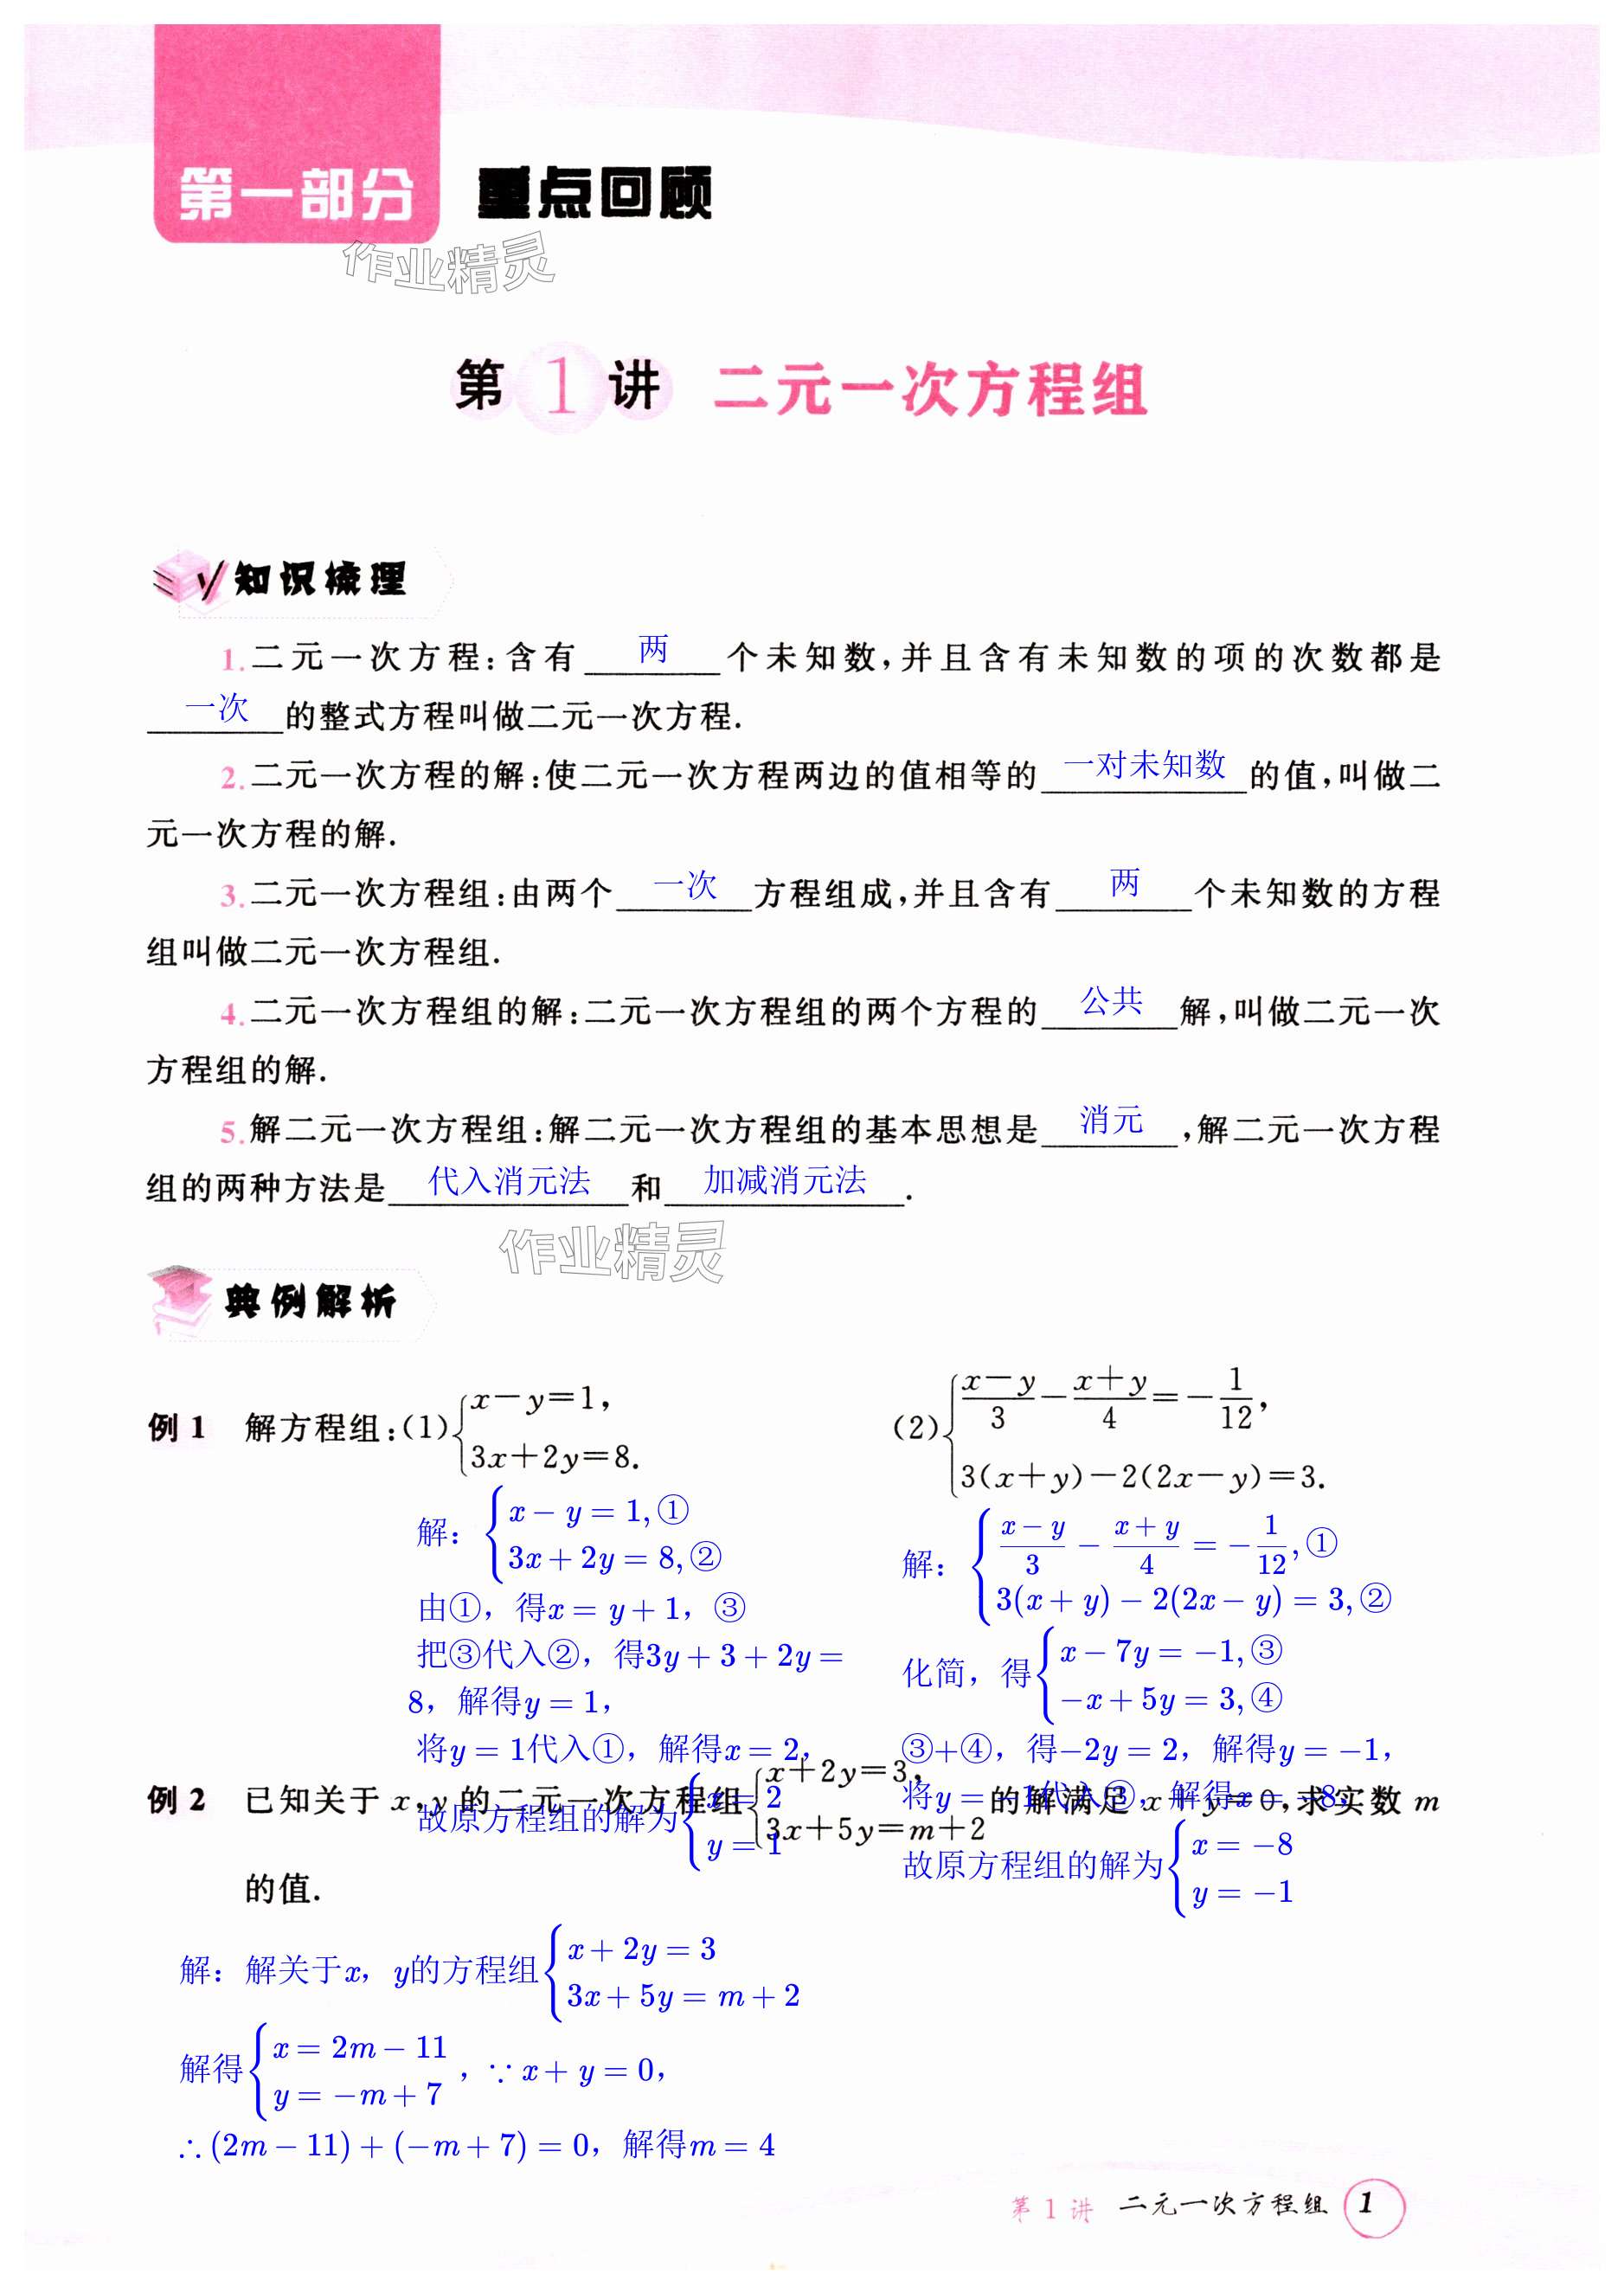 第一部分 重点回顾
作业精灵
第1讲 二元一次方程组
知识梳理
1.二元一次方程:含有 两 个未知数,并且含有未知数的项的次数都是
一次 的整式方程叫做二元一次方程.
2.二元一次方程的解:使二元一次方程两边的值相等的 一对未知数 的值,叫做二
元一次方程的解.
3.二元一次方程组:由两个 一次 方程组成,并且含有 两 个未知数的方程
组叫做二元一次方程组.
4.二元一次方程组的解:二元一次方程组的两个方程的 公共 解,叫做二元一次
方程组的解.
5.解二元一次方程组:解二元一次方程组的基本思想是 消元 ,解二元一次方程
组的两种方法是 代入消元法 和 加减消元法 .
作业精灵
典例解析
例1 解方程组:(1){x-y=1, 3x+2y=8.
(2){(x-y)/3-(x+y)/4=-1/12, 3(x+y)-2(2x-y)=3.
解：{x-y=1,① 3x+2y=8,②
由①，得x=y+1，③
把③代入②，得3y+3+2y=
8，解得y=1，
将y=1代入①，解得x=2，
故原方程组的解为{x=2 y=1
解：{(x-y)/3-(x+y)/4=-1/12,① 3(x+y)-2(2x-y)=3,②
化简，得{x-7y=-1,③ -x+5y=3,④
③+④，得-2y=2，解得y=-1，
将y=-1代入③，解得x=-8，
故原方程组的解为{x=-8 y=-1
例2 已知关于x,y的二元一次方程组{x+2y=3, 3x+5y=m+2 的解满足x+y=0,求实数m
的值.
解：解关于x，y的方程组{x+2y=3 3x+5y=m+2
解得{x=2m-11 y=-m+7，∵x+y=0，
∴(2m-11)+(-m+7)=0，解得m=4
第1讲 二元一次方程组 1